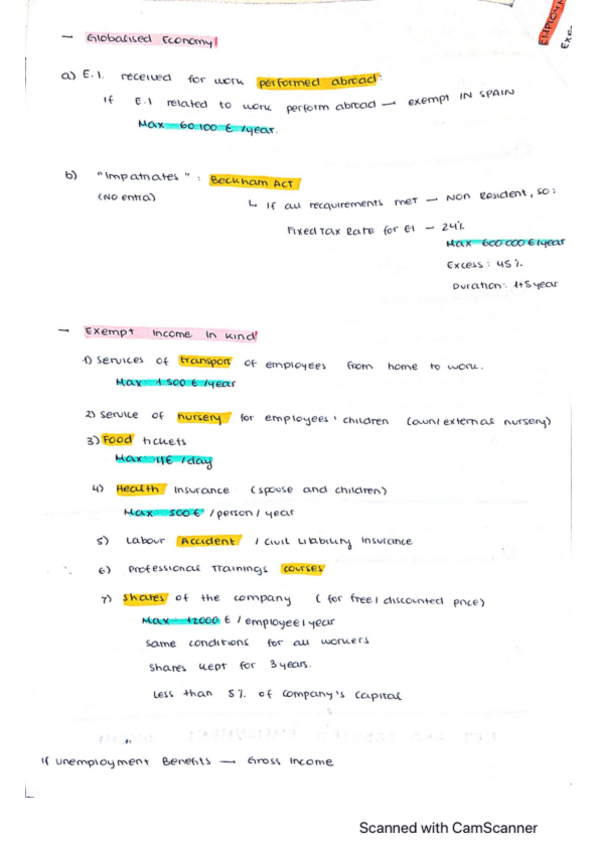 EMPLOYM
Exe
– Globalised Economy
a) E.I. received for work performed abroad:
If E.I related to work perform abroad → exempt IN SPAIN
Max 60.100 € /year.
b) "Impatriates" : Beckham ACT
(NO entra)
↳ If all recquirements met → Non Resident, so:
Fixed Tax Rate for EI – 24%
Max 600 000 €/year
Excess: 45%
Duration: 1+5 year
– Exempt Income In Kind
1) Services of transport of employees from home to work.
Max 1.500 € /year
2) Service of nursery for employees' children (own/external nursery)
3) Food tickets
Max 11€ /day
4) Health Insurance (spouse and children)
Max 500 € / person / year
5) Labour Accident / Civil Liability insurance
6) Professional Trainings courses
7) Shares of the company ( for free / discounted price)
Max 12000 € / employee / year
Same conditions for all workers
Shares kept for 3 years.
Less than 5% of company's capital
If unemployment Benefits → Gross Income
Scanned with CamScanner